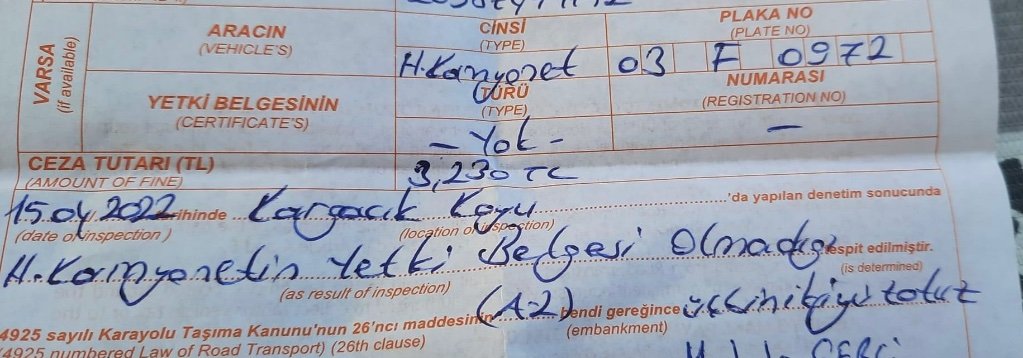 ARACIN CİNSİ PLAKA NO
(VEHICLE'S) (TYPE) (PLATE NO)
VARSA
(if available)
H.Kamyonet 03 F 0972
YETKİ BELGESİNİN TÜRÜ NUMARASI
(CERTIFICATE'S) (TYPE) (REGISTRATION NO)
- Yok - -
CEZA TUTARI (TL) 3,230 TL
(AMOUNT OF FINE)
15.04.2022 ihinde Kargacık Koyu 'da yapılan denetim sonucunda
(date of inspection) (location of inspection)
H.Kamyonetin Yetki Belgesi Olmadığı tespit edilmiştir.
(as result of inspection) (is determined)
4925 sayılı Karayolu Taşıma Kanunu'nun 26'ncı maddesinin (A-2) bendi gereğince üçbinikiyüzotuz
(4925 numbered Law of Road Transport) (26th clause) (embankment)